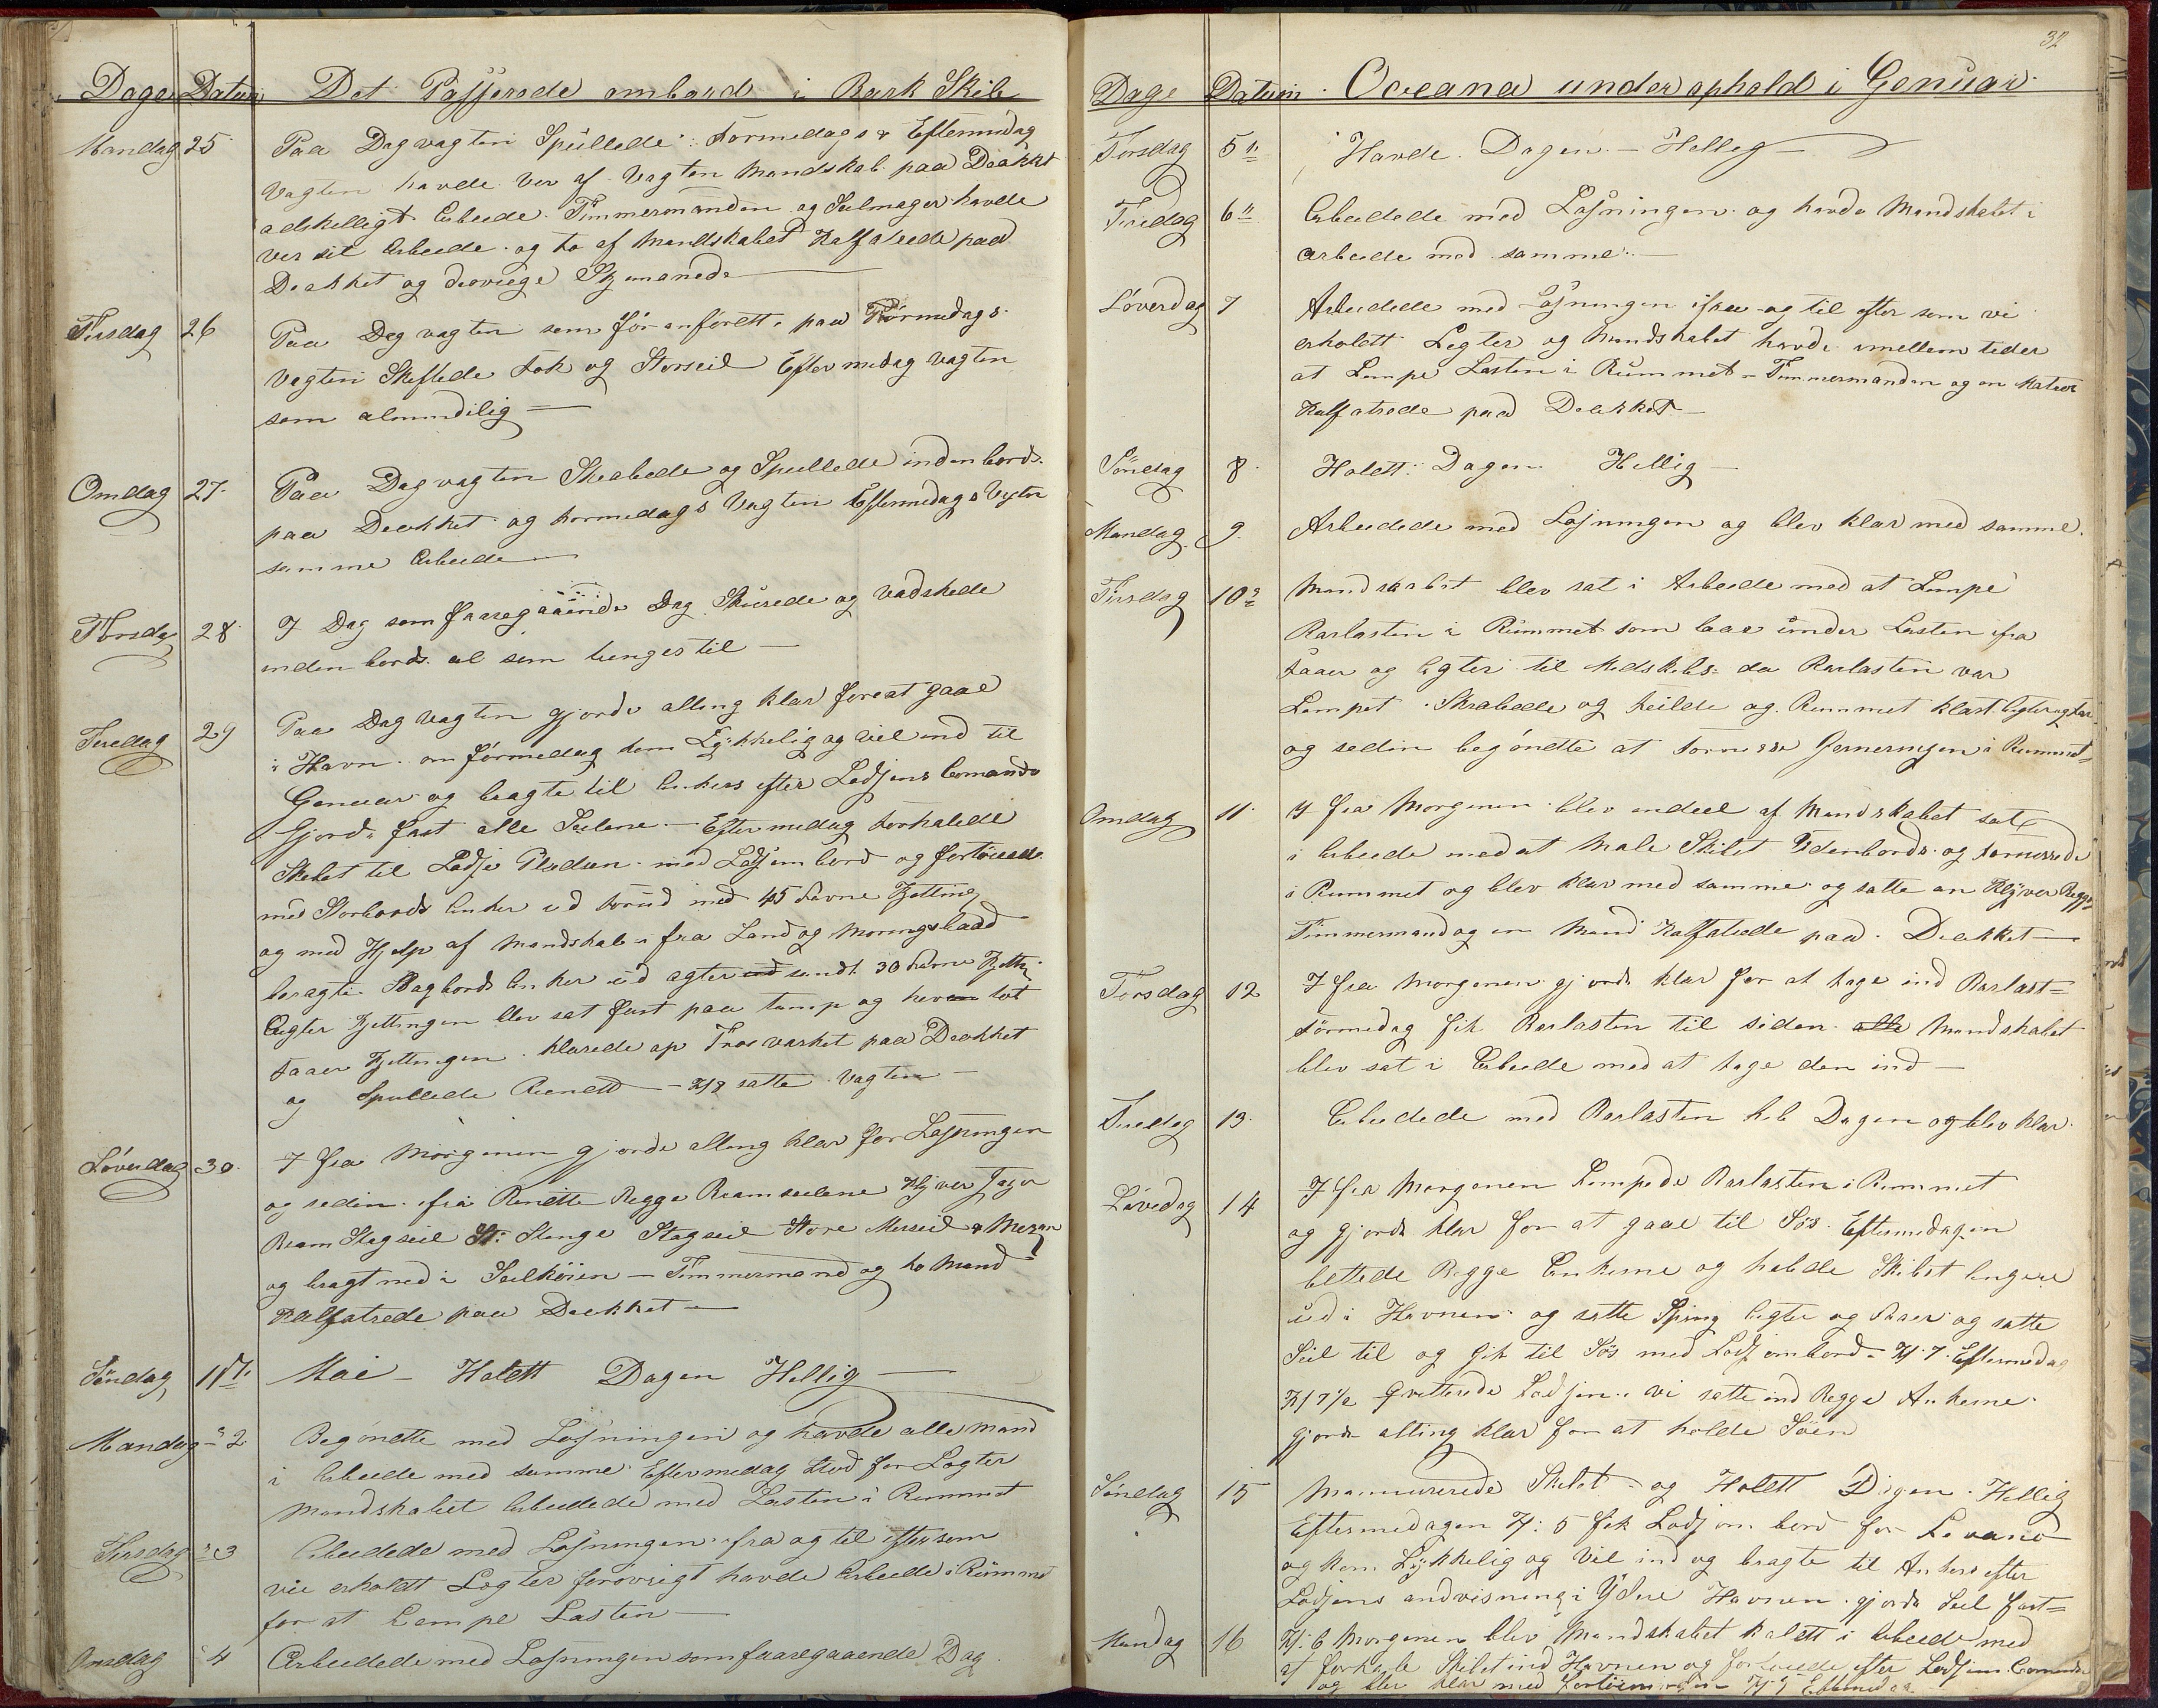 Dage Datum Det Passerede ombord i Bark Skib
Mandag 25 Paa Dagvagten Spüllede: Formedags & Eftermidag
Vagten havde Ver af Vagten Mandskab paa Dækket
adskelligt Arbeede. Timmermanden og Seilmager havde
ver sit Arbeede og to af Mandskabet Kalfatrede paa
Dækket og deovrige Skjemanede
Tirsdag 26 Paa Dagvagten som før anførett, paa Førmedags
Vagten Skiftede Fok og Storseil Eftermedag vagten
som almindilig
Onsdag 27. Paa Dagvagten Skrabede og Spullede indenbords
paa Dækket og formedags Vagten Eftermedags Vagten
samme Arbeede
Thorsdag 28. I Dag som Faaregaaende Dag Skurede og vadskede
indenbords al som trenges til
Fredag 29 Paa Dag Vagten gjorde alting klar for at gaae
i Havn. om førmedag kom Lykkelig og vel ind til
Genuar og bragte til Ankers efter Lodsens Comando
Gjorde fast alle Seilene. Eftermedag Forhalede
Skibet til Lodse Pladsen med Lodsen bord og fortøiede
med Storbords Anker ud forud med 45 Favne Kjetting
og med Hjelp af Mandskab i fra Land og Moringsbaad
beragte Bagbords Anker ud agter samt 30 Favne Kjetting
Agter Kjettingen blev sat fast paa tamp og heven tot
Faaer Kjettingen. klarede op Trosvarket paa Dækket
og Spullede Reenett - Kl 8 satte Vagten
Løverdag 30. I fra Morgenen gjorde alting klar for Losningen
og seden ifra Rendte Begge Bramseilene Klyver Jager
Bram Stagseil St: Stenge Stagseil Store Merseil & Mezan
og bragt ned i Seilkøien - Timmermand og to Mand
Kalfatrede paa Dækket
Søndag 1 Mai - Holdt Dagen Hellig
Mandag " 2 Begøndte med Losningen og havde alle Mand
i Arbeede med samme Eftermedag Stod for Legter
Mandskabet Arbeedede med Lasten i Rummet
Tirsdag " 3 Arbeedede med Losningen ifra og til eftersom
vie erholdt Legter forøvrigt havde Arbeede i Rummet
for at Lempe Lasten
Onsdag " 4 Arbeedede med Losningen som faaregaaende Dag.
32
Dage Datum. Oceana under ophold i Genuar
Torsdag 5" Havde Dagen - Hellig
Fredag 6" Arbeedede med Losningen og havde Mandskabet i
arbeede med samme
Løverdag 7 Arbeidede med Losningen ifra og til efter som vi
erholdt Legter og Mandskabet havde imellem tider
at Lempe Lasten i Rummet - Timmermanden og en Matros
Kalfatrede paa Dækket
Søndag 8. Holdt Dagen Hellig
Mandag 9. Arbeidede med Losningen og blev klar med samme.
Tirsdag 10 Mandskabet blev sat i Arbeede med at Lempe
Barlasten i Rummet som laae under Lasten ifra
Faaer og Agter til Midskibs da Barlasten var
Lempet. Skrabede og feilde og Rummet klart Agter og For
og sedin begøndte at Fernisse Gerneringen i Rummet
Onsdag 11. I fra Morgenen blev endeel af Mandskabet sat
i Arbeede med at Male Skibet Udenbords og Fernissede
i Rummet og blev klar med samme og satte an Klyver Begge
Timmermand og en Mand Kalfatrede paa Dækket
Torsdag 12 I fra Morgenen gjorde klar for at tage ind Barlast
Førmedag fik Barlasten til siden. alle Mandskabet
blev sat i Arbeede med at tage den ind
Fredag 13. Arbeedede med Barlasten hele Dagen og blev klar.
Løvedag 14 I fra Morgenen Lempede Barlasten i Rummet
og gjorde klar for at gaae til Søs. Eftermedagen
lettede Begge Ankerne og halede Skibet lengere
ud i Havnen og satte Spring Agter og Faaer og satte
Seil til og Gik til Søs med Lods ombord - Kl 7 Eftermedag
Kl 7½ Qvitterede Lodsen. vi satte ind Begge Ankerne
gjorde alting klar for at holde Søen
Søndag 15 Mannuvrerede Skibet - og Holdt Dagen Hellig
Eftermedagen Kl: 5 fik Lods om bord for Levano
og kom Lykkelig og Vel ind og bragte til Ankers efter
Lodsens andvisning i Ydere Havnen. gjorde Seil fast
Mandag 16 Kl: 6 Morgenen blev Mandskabet kaldt i Arbeede med
at forhale Skibet ind Havnen og fortøiede efter Lodsens Comando
og blev klar med Fortøiningen Kl 9 Eftermedag